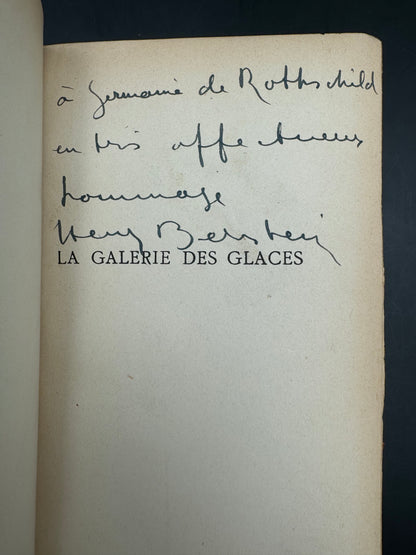 à Germaine de Rothschild
en très affectueux
hommage
Henry Bernstein
LA GALERIE DES GLACES